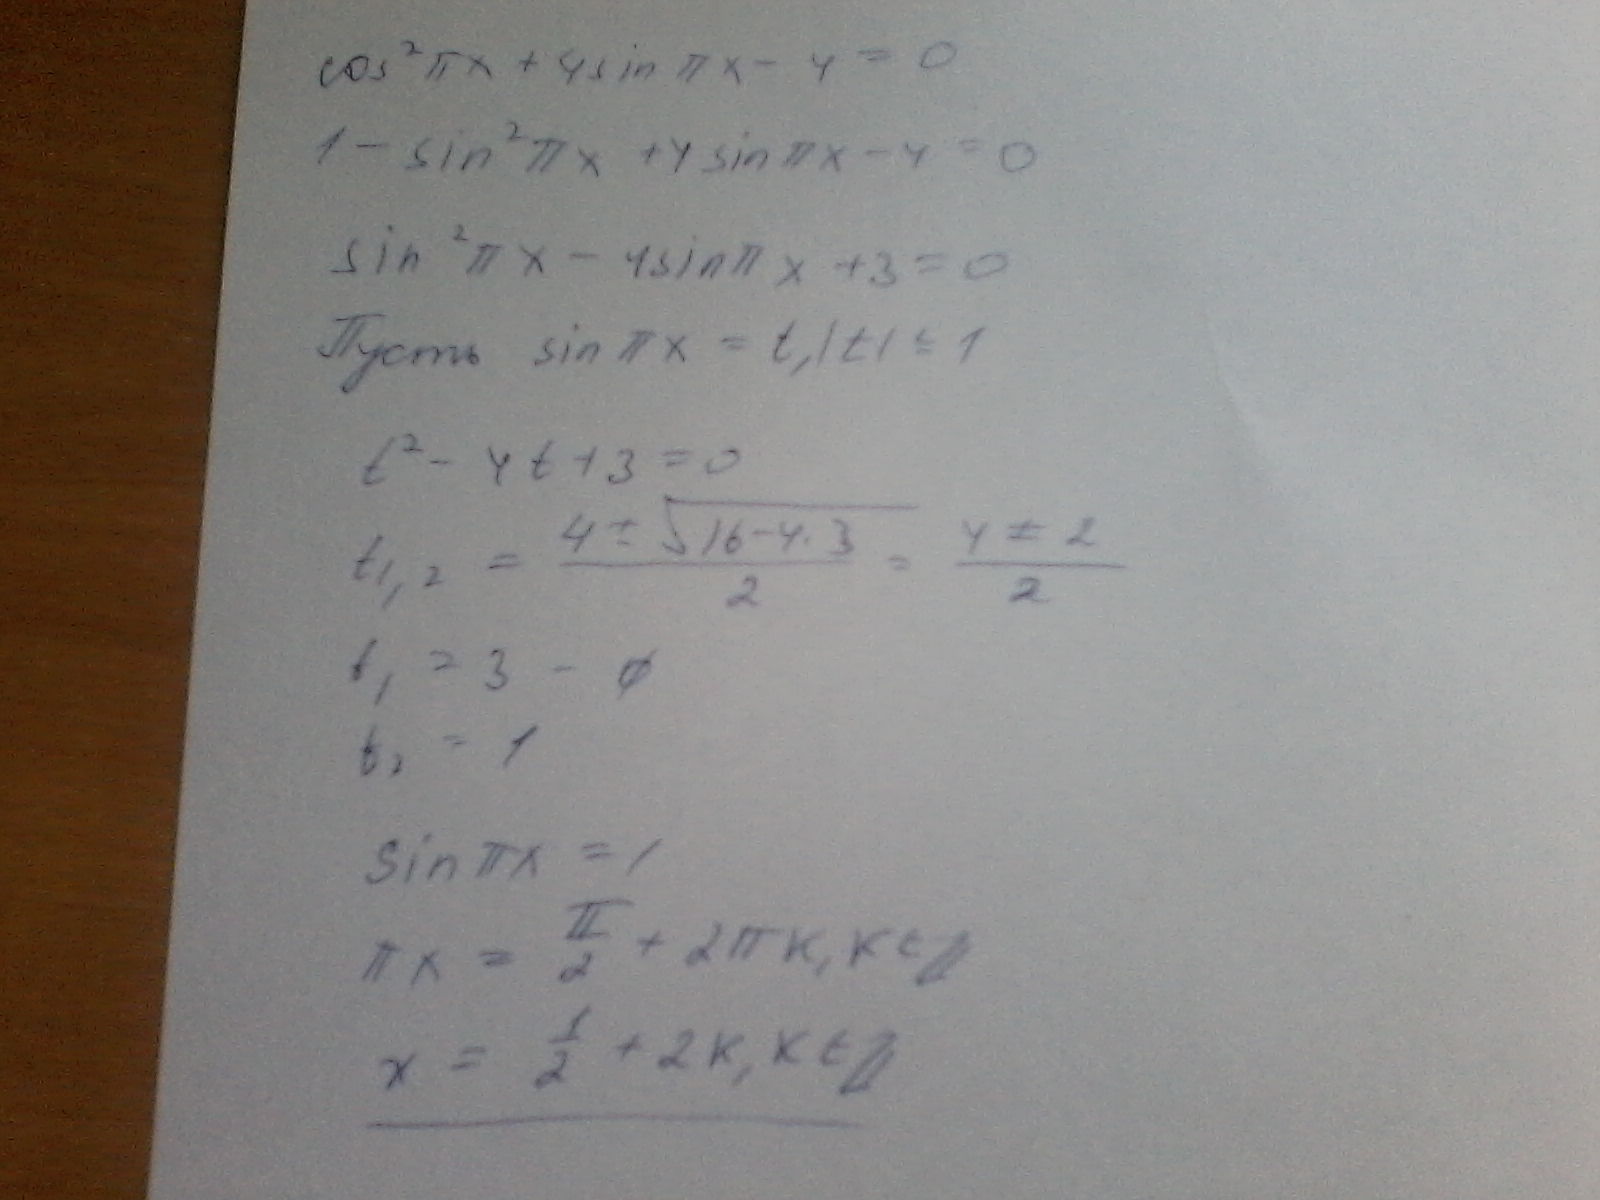 cos²πx + 4sin πx - 4 = 0
1 - sin²πx + 4sinπx - 4 = 0
sin²πx - 4sinπx + 3 = 0
Пусть sinπx = t, |t| ≤ 1
t² - 4t + 3 = 0
t₁,₂ = (4 ± √(16 - 4·3))/2 = (4 ± 2)/2
t₁ = 3 - ∅
t₂ = 1
sinπx = 1
πx = π/2 + 2πk, k∈ℤ
x = 1/2 + 2k, k∈ℤ